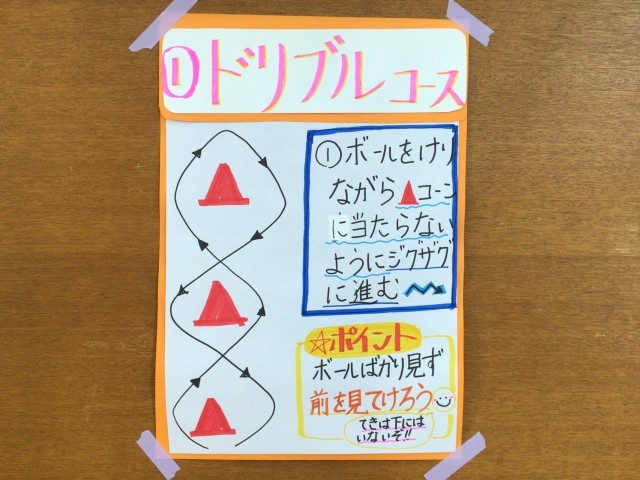 ①ドリブルコース
①ボールをけり
ながらコーン
に当たらない
ようにジグザグ
に進む
☆ポイント
ボールばかり見ず
前を見てけろう
てきは下には
いないぞ!!